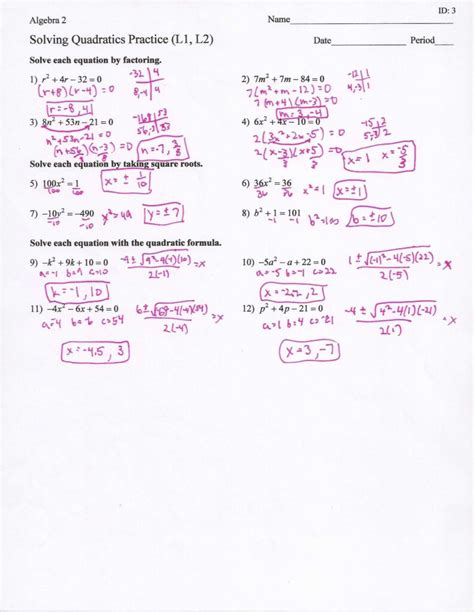 ID: 3
Algebra 2
Name
Solving Quadratics Practice (L1, L2)
Date Period
Solve each equation by factoring.
1) r² + 4r − 32 = 0
-32 | 4
8,-4 | 4
(r+8)(r-4) = 0
r = -8, 4
2) 7m² + 7m − 84 = 0
-12 | 1
4,-3 | 1
7(m² + m - 12) = 0
7(m+4)(m-3) = 0
m = 3, -4
3) 8n² + 53n − 21 = 0
-168 | 53
56,-3 | 53
n² + 53n - 21 = 0
(n+56)(n-3) = 0
n = -7, 3/8
4) 6x² + 4x − 10 = 0
-15 | 2
5,-3 | 2
2(3x² + 2x - 5) = 0
2(x-3)(x+5) = 0
x = 1 x = -5/3
Solve each equation by taking square roots.
5) 100x² = 1
100 100
x = ± 1/10
6) 36x² = 36
36 36
x² = 1
x = ± 1
7) −10y² = −490
-10 -10
x² = 49
y = ± 7
8) b² + 1 = 101
-1 -1
b² = 100
b = ± 10
Solve each equation with the quadratic formula.
9) −k² + 9k + 10 = 0
a = -1 b = 9 c = 10
2(-1)
= x
k = -1, 10
10) −5a² − a + 22 = 0
a = -5 b = -1 c = 22
1 ± √(-1)² - 4(-5)(22)
2(-5)
= x
11) −4x² − 6x + 54 = 0
b = -6 c = 54
2(-4)
= x
x = -4.5, 3
12) p² + 4p − 21 = 0
a = 1 b = 4 c = -21
-4 ± √4² - 4(1)(-21)
2(1)
= x
x = 3, -7